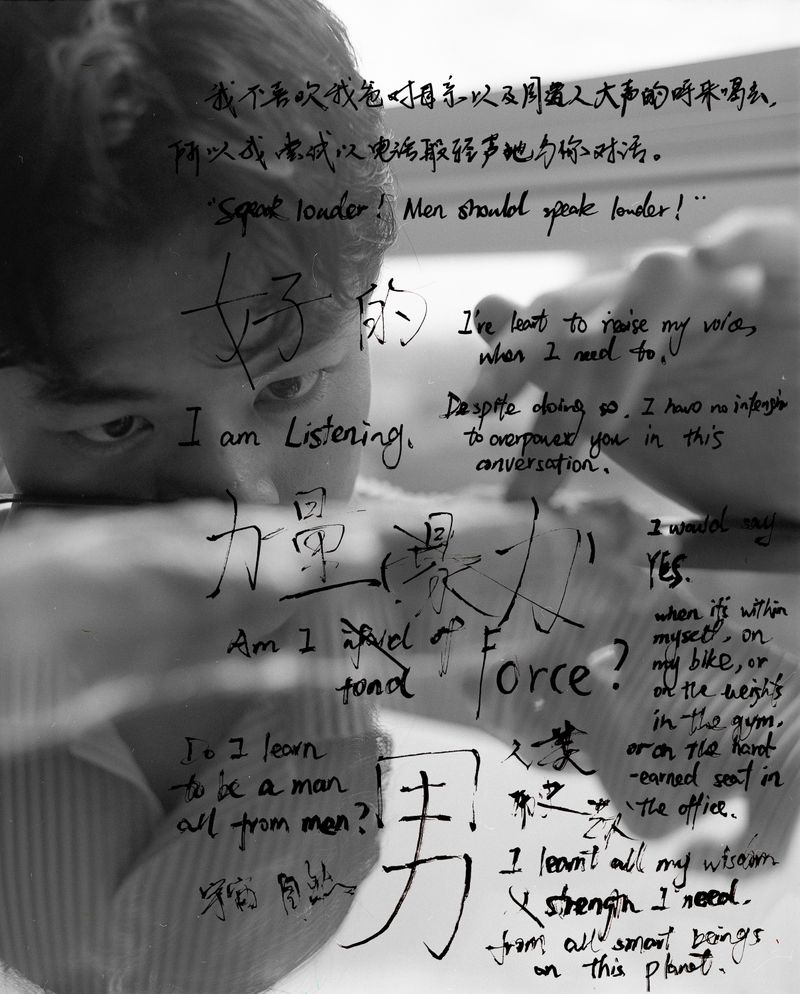 我不喜欢我爸对母亲以及周遭人大声的呼来喝去，
所以我尝试以电话般轻声地与你对话。
"Speak louder! Men should speak louder!"
好的
I've leart to raise my voice,
when I need to.
I am Listening.
Despite doing so. I have no intensin
to overpower you in this
conversation.
力量（暴力）
I would say
YES.
when it's within
myself, on
my bike, or
on the weights
in the gym.
or on the hard
-earned seat in
the office.
Am I afraid of Force?
fond
Do I learn
to be a man
all from men?
男
宇宙 自然
I learnt all my wisdom
strength I need.
from all smart beings
on this planet.